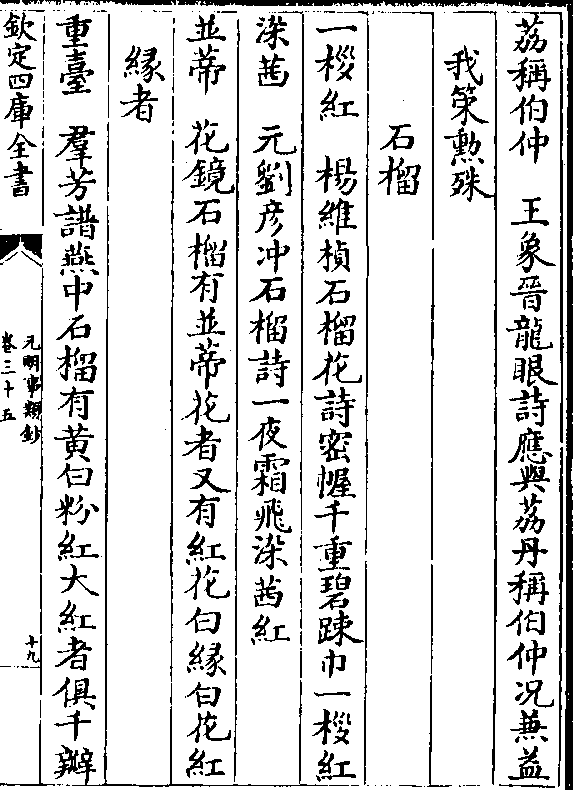 荔稱伯仲　王象晉龍眼詩應與荔丹稱伯仲况兼益
我策勲殊
石榴
一梭紅　楊維楨石榴花詩密幄千重碧踈巾一梭紅
深茜　元劉彦冲石榴詩一夜霜飛深茜紅
並蒂　花鏡石榴有並蒂花者又有紅花白緣白花紅
緣者
重臺　羣芳譜燕中石榴有黄白粉紅大紅者俱千瓣
欽定四庫全書
元明事類鈔
卷三十五
十九